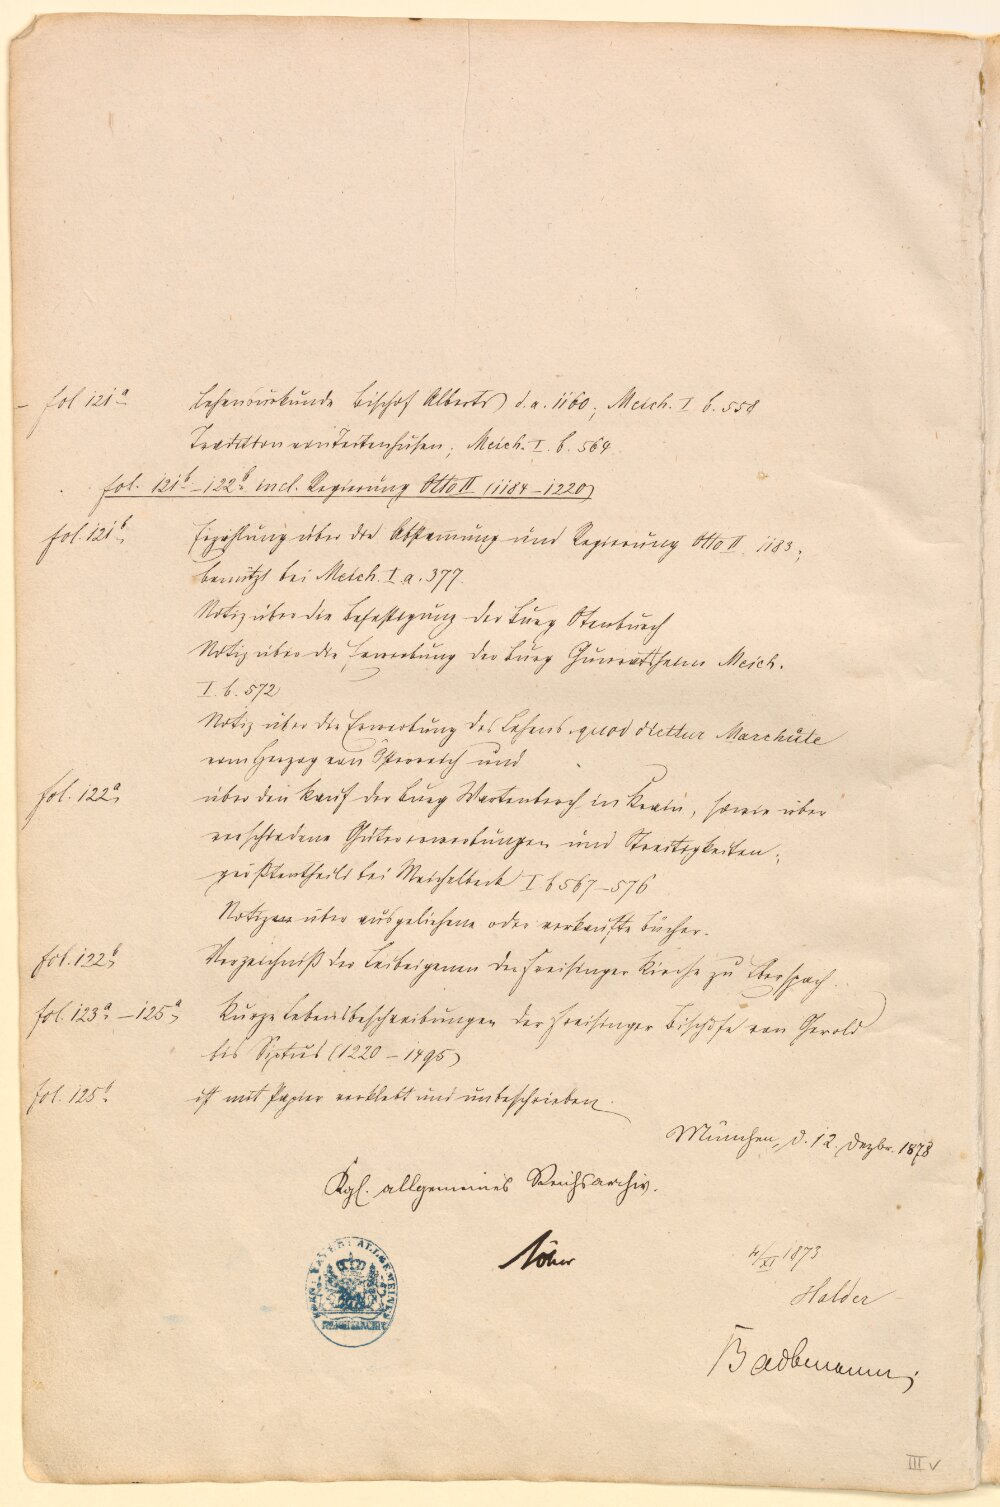 – fol 121ª Lehensurkunde Bischof Alberts d. a. 1160; Meich. I. b. 558
Tradition von Tertenhusen; Meich. I. b. 564.
fol. 121ᵇ–122ᵇ incl. Regierung Otto II (1184–1220)
fol. 121ᵇ, Erzählung über die Abstam̄ung und Regierung Otto II 1183;
benützt bei Meich. I. a. 377.
Notiz über die Befestigung der Burg Otenburch
Notiz über die Erwerbung der Burg Meich.
I. b. 572
Notiz über die Erwerbung des Lehens quod dicitur Marchute
vom Herzog von Österreich und
fol. 122ª, über den Kauf der Burg Wartenberch in Krain, sowie über
verschiedene Gütererwerbungen und Streitigkeiten;
größtentheils bei Meichelbeck I b 567–576
Notizen über ausgeliehene oder verkaufte Bücher.
fol. 122ᵇ, Verzeichniß der Leibeigenen der Freisinger Kirche zu Eberspach.
fol. 123ª–125ª, Kurze Lebensbeschreibungen der Freisinger Bischöfe von Gerold
bis Sixtus (1220–1495)
fol. 125ᵇ. ist mit Papier verklebt und unbeschrieben.
München, d. 12. Dezbr. 1873
Kgl. allgemeines Reichsarchiv.
Löher
4/XI 1873
Halder
KGL. BAYER. ALLGEMEINES
REICHSARCHIV
III v